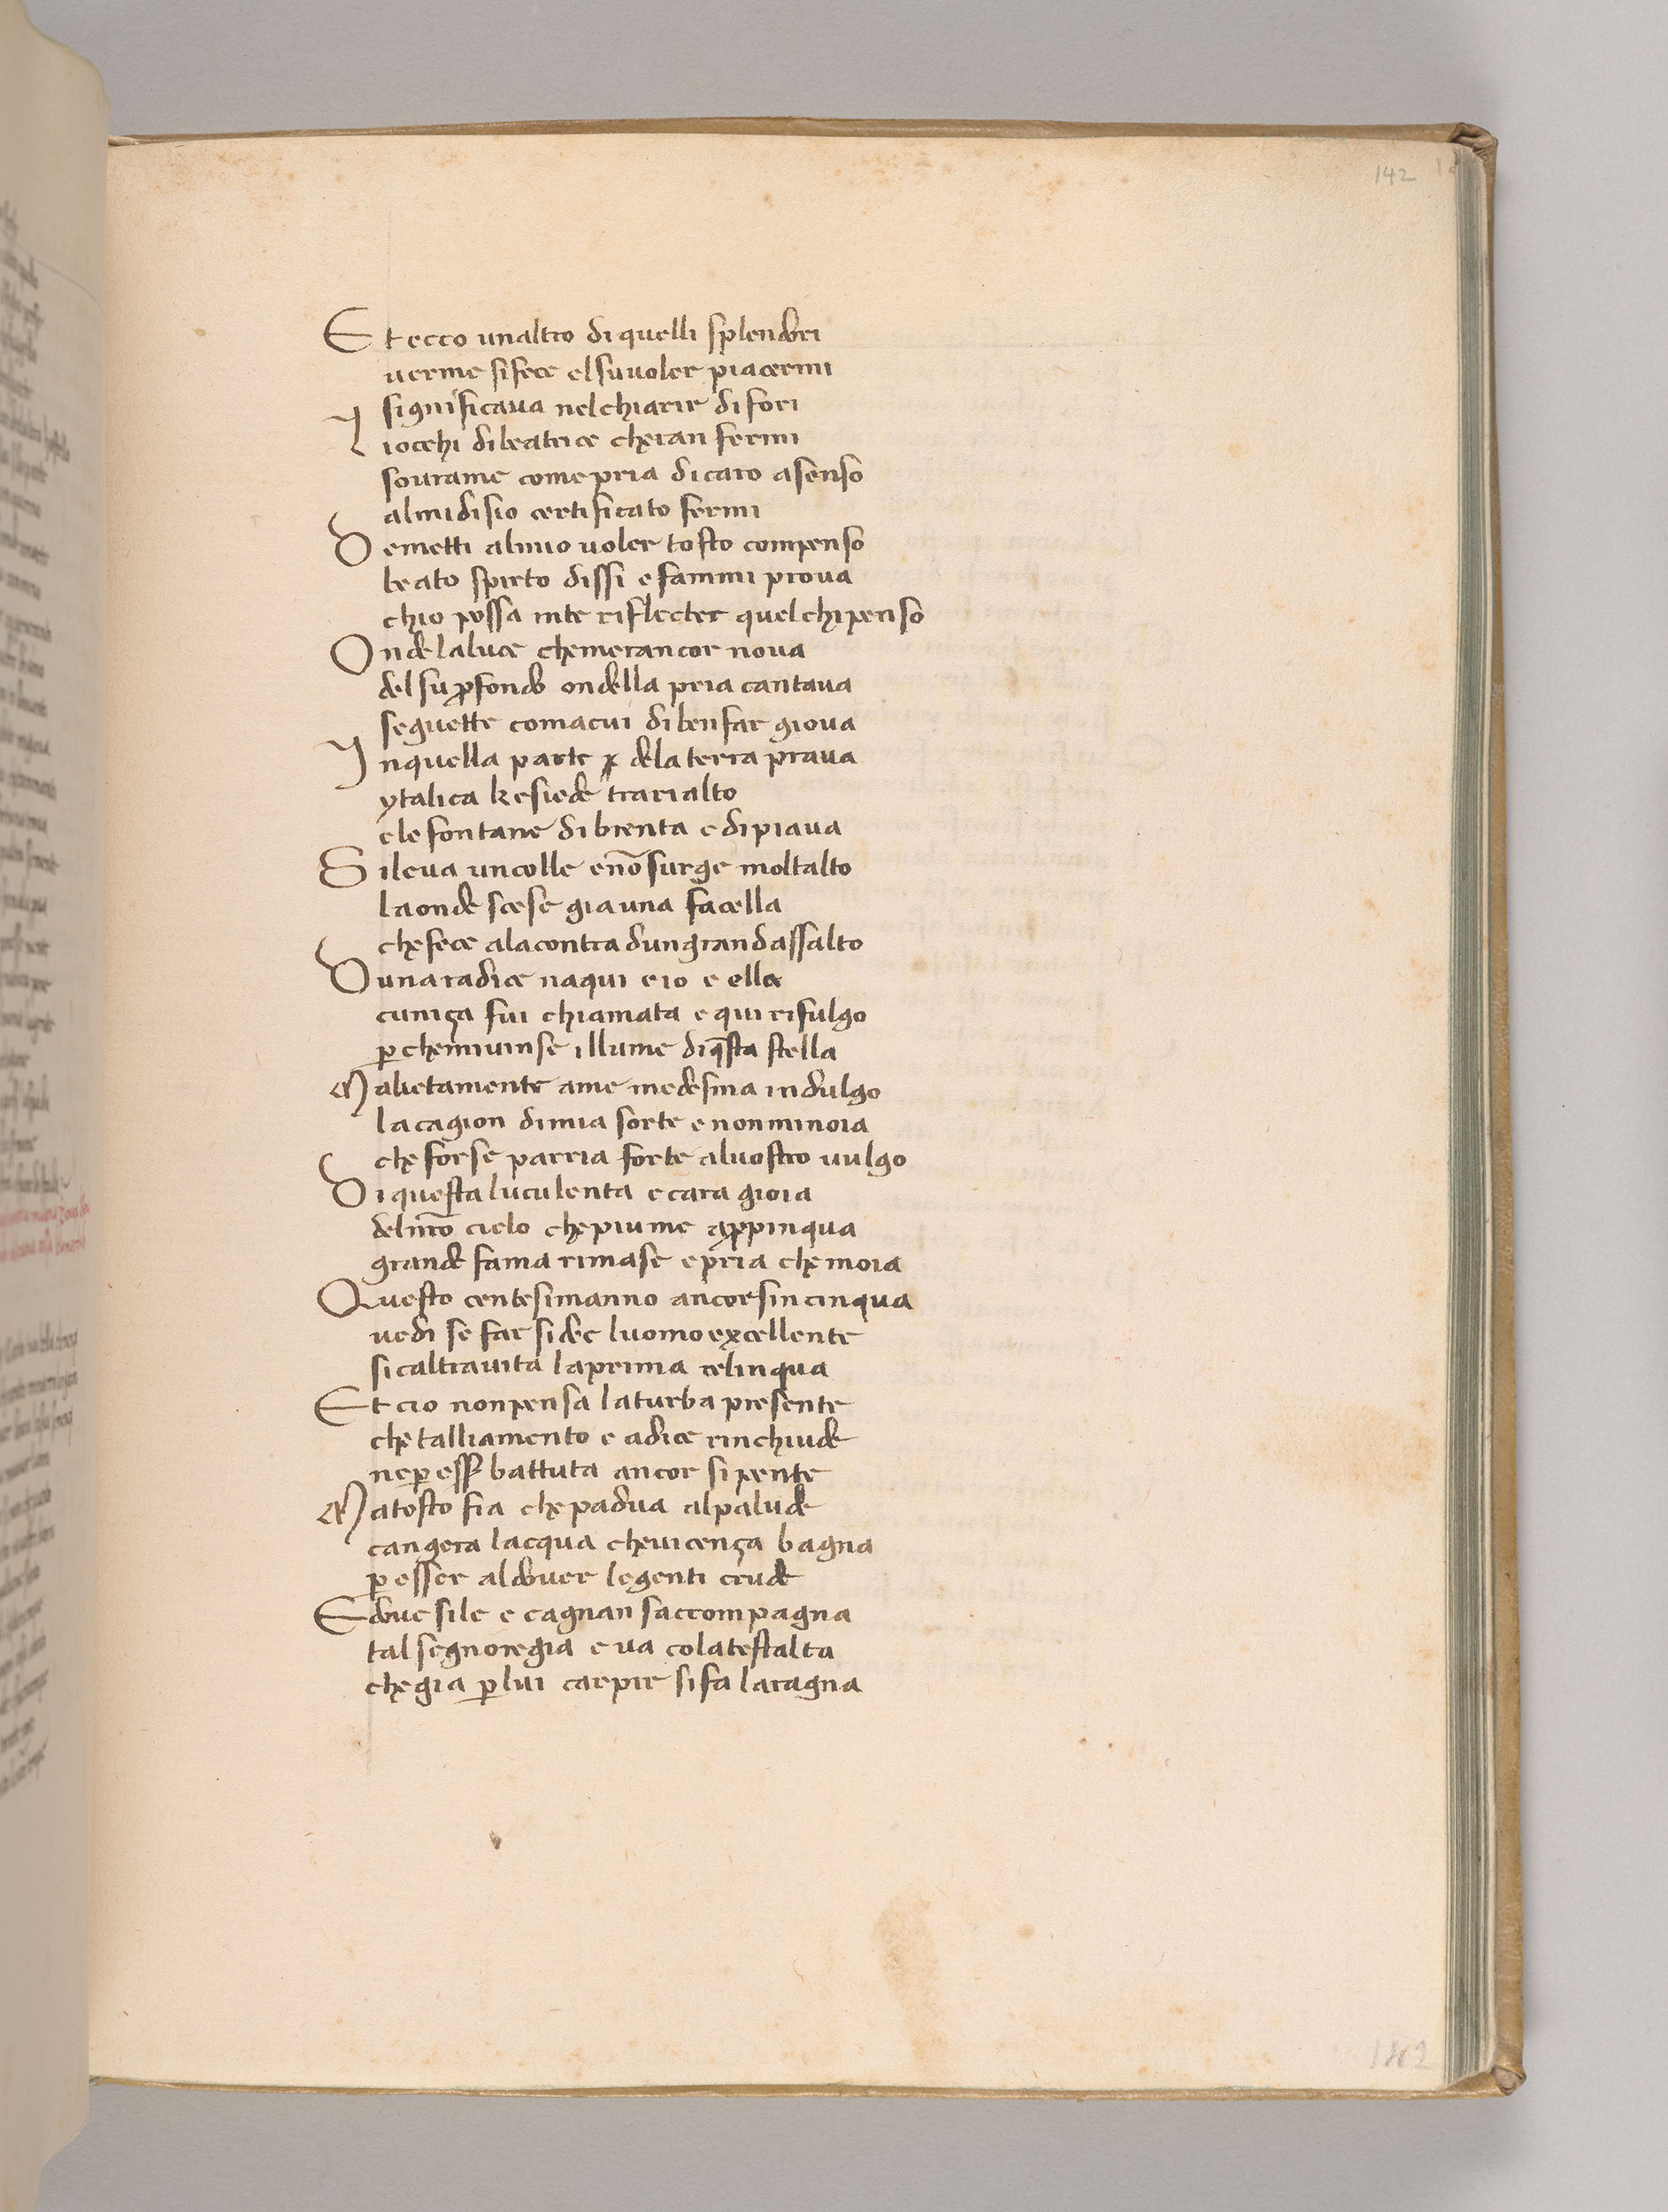 142
Et ecco unaltro di quelli splendori
verme sifece el suvoler piacermi
significava nel chiarir di fori
I iocchi di beatrice cheran fermi
sovrame come pria di caro asenso
almi disio certificato fermi
De metti almio voler tosto compenso
beato spirto dissi e fammi prova
chio possa inte riflecter quel chi penso
Onde la luce chemerancor nova
del su ꝓfondo ondella pria cantava
seguette comacui di ben far giova
In quella parte de la terra prava
ytalica ke siede tra rialto
e le fontane di brenta e di piava
Si leva un colle e nō surge moltalto
la onde scese gia una facella
che fece ala contra dun grand assalto
Duna radice naqui e io e ella
cuniça fui chiamata e qui rifulgo
ꝑ che mi vinse il lume di q̄sta stella
Ma lietamente a me medesma indulgo
la cagion di mia sorte e non mi noia
che forse parria forte al vostro vulgo
Di questa luculenta e cara gioia
del nr̄o cielo che piu me aꝓpinqua
grande fama rimase e pria che moia
Questo centesimanno ancor sincinqua
vedi se far si dee luomo excellente
si caltra vita la prima relinqua
Et cio non pensa la turba presente
che talliamento e adice rinchiude
ne ꝑ esser battuta ancor si pente
Ma tosto fia che padua al palude
cangera lacqua che vicença bagna
ꝑ esser al dover le genti crude
E dove sile e cagnan saccompagna
tal segnoregia e va cola testalta
che gia ꝑ lui carpir si fa la ragna